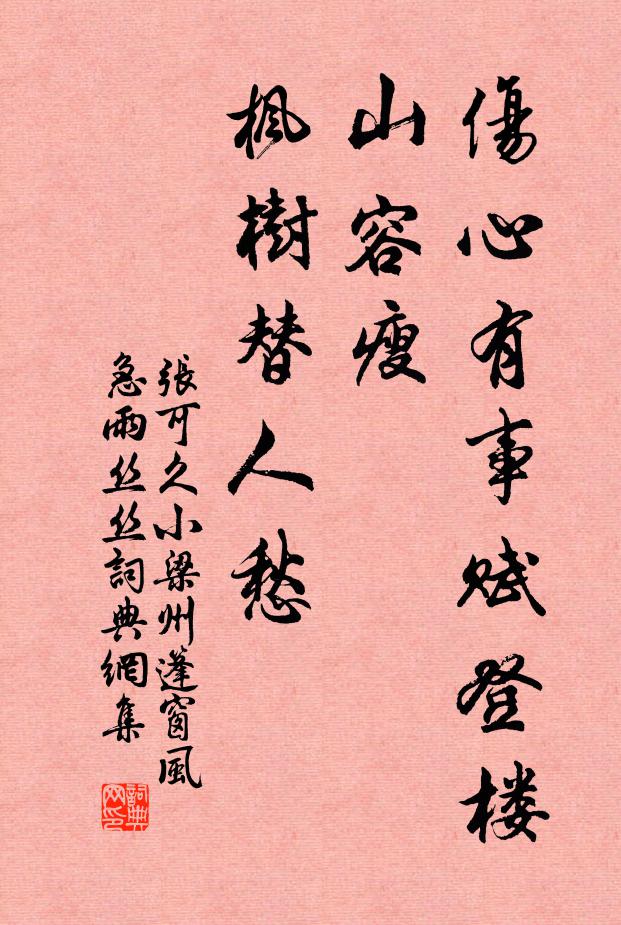 傷心有事賦登楼
山容瘦
楓樹替人愁
張可久小梁州蓬窗風
急雨丝丝詞典網集
詞典
网印